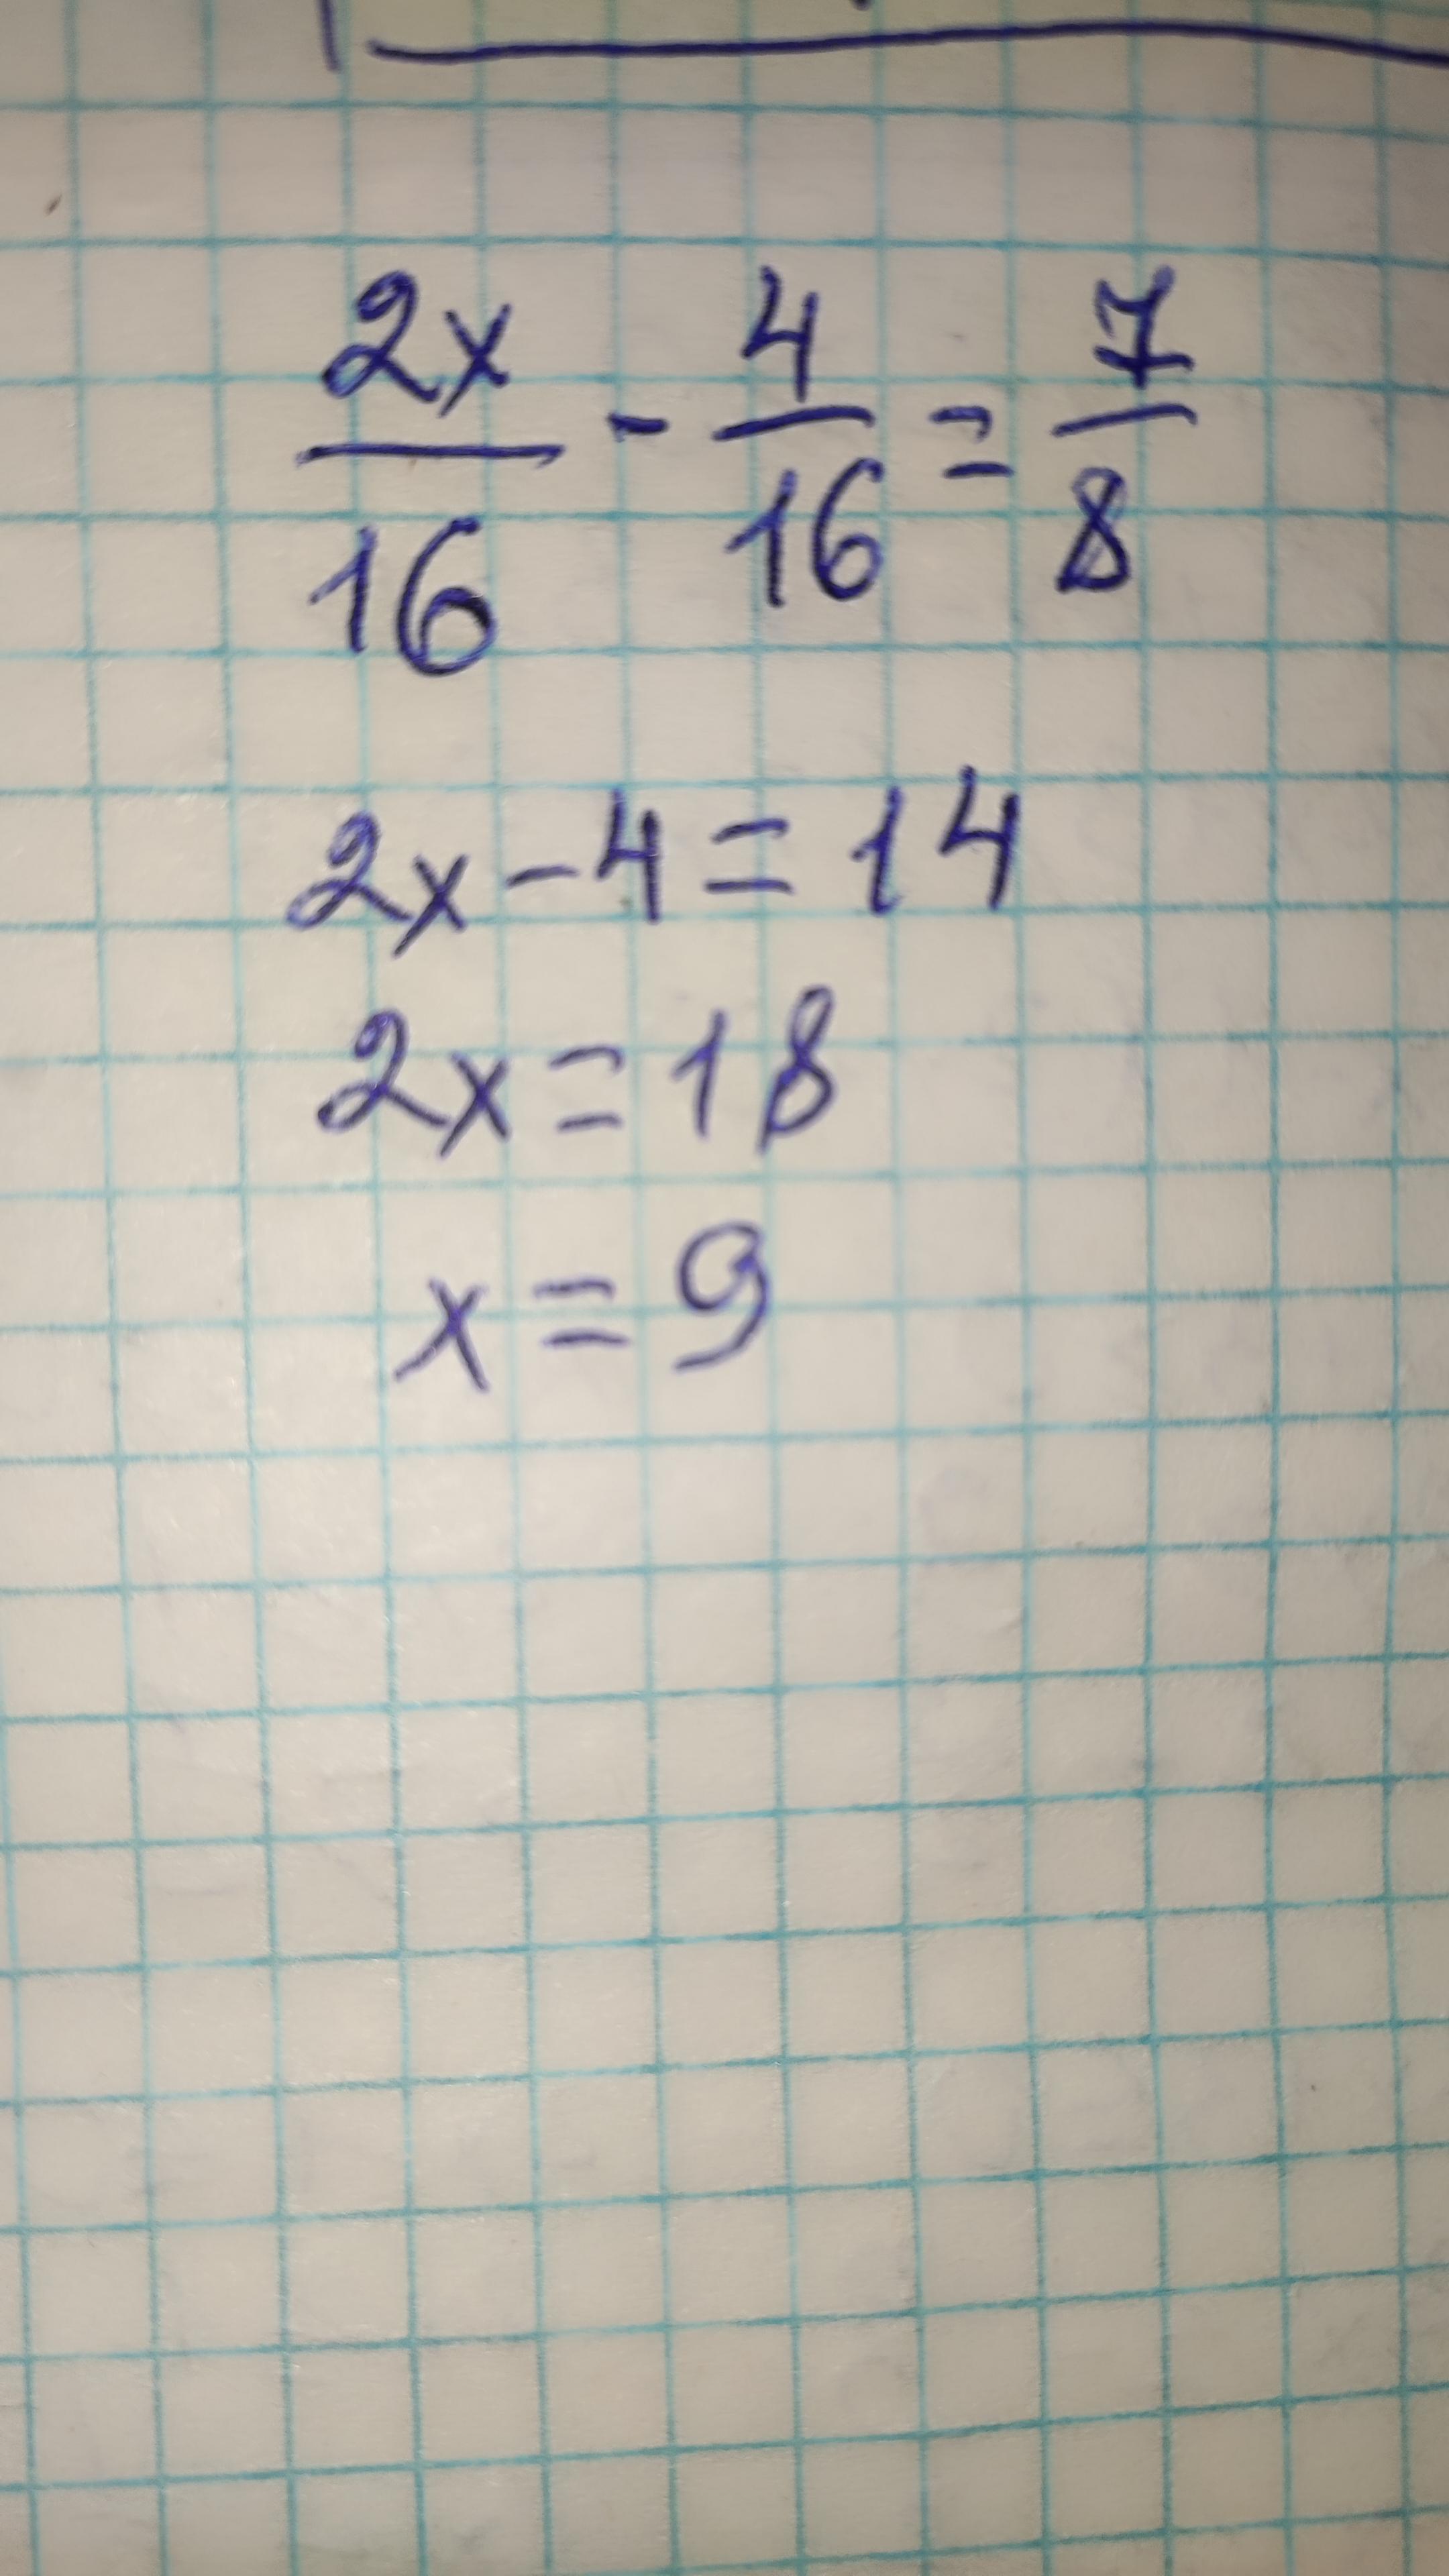 2x/16 - 4/16 = 7/8
2x - 4 = 14
2x = 18
x = 9